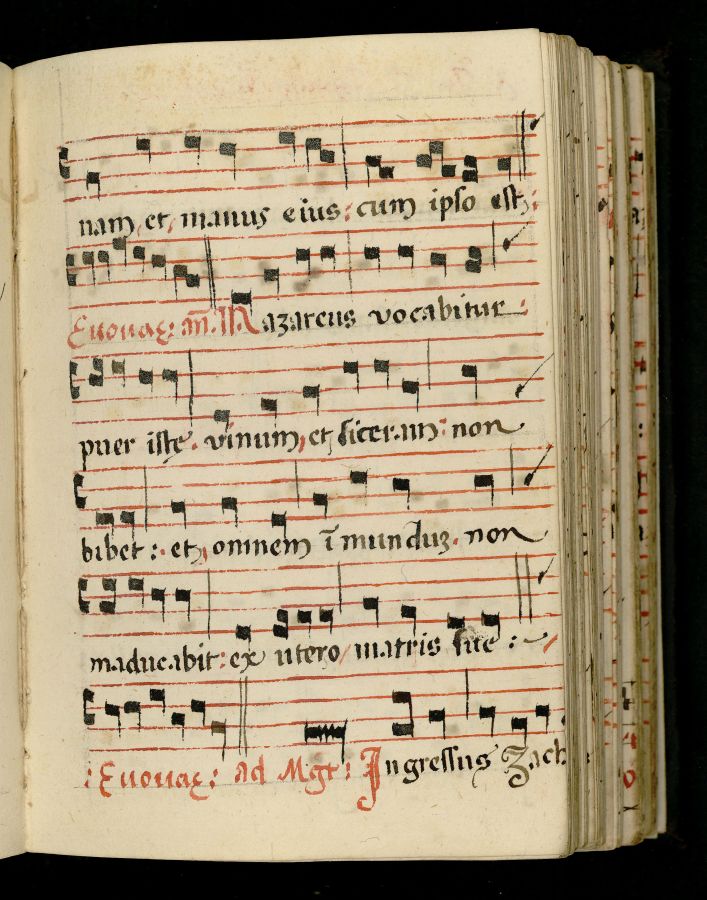 nam, et, manus eius: cum ipso est:
Euouae: añ. Nazareus vocabitur:
puer iste. vinum, et siceram: non
bibet: et, omnem īmunduz. non
maducabit: ex utero matris sue:
: Euouae: ad Mgt: Ingressus Zach